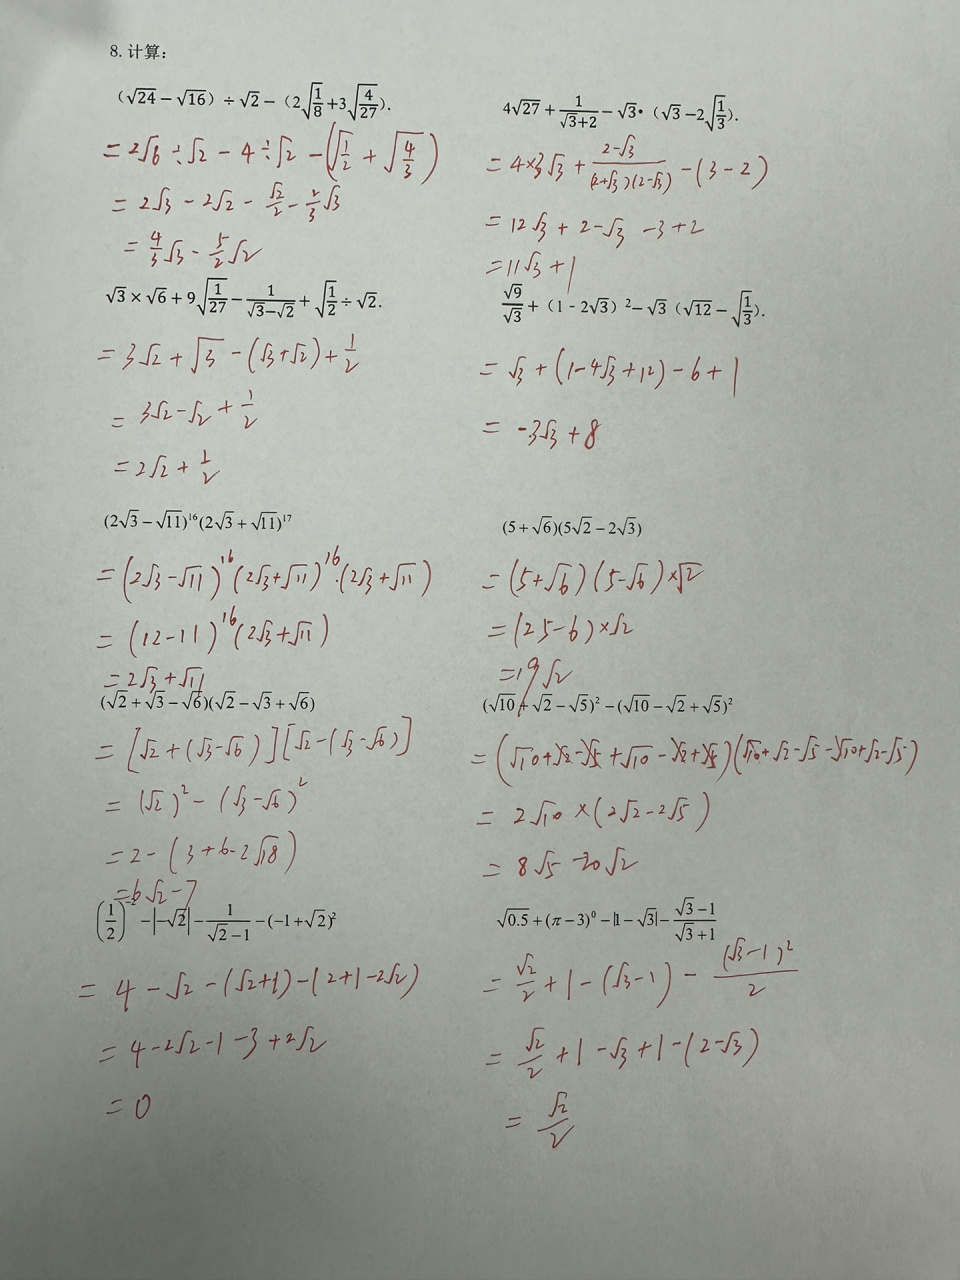 8. 计算：
（√24－√16）÷√2－（2√(1/8)+3√(4/27)）.
=2√6÷√2－4÷√2－(√(1/2)+√(4/3))
=2√3－2√2－√2/2－2/3√3
=4/3√3－5/2√2
4√27+1/(√3+2)－√3•（√3－2√(1/3)）.
=4×3√3+(2-√3)/((2+√3)(2-√3))－(3－2)
=12√3+2-√3-3+2
=11√3+1
√3×√6+9√(1/27)－1/(√3－√2)+√(1/2)÷√2.
=3√2+√3－(√3+√2)+1/2
=3√2-√2+1/2
=2√2+1/2
√9/√3+（1 - 2√3）²－√3（√12－√(1/3)）.
=√3+(1-4√3+12)－6+1
=-3√3+8
(2√3－√11)¹⁶(2√3+√11)¹⁷
=(2√3-√11)¹⁶(2√3+√11)¹⁶·(2√3+√11)
=(12-11)¹⁶(2√3+√11)
=2√3+√11
(5+√6)(5√2－2√3)
=(5+√6)(5-√6)×√2
=(25-6)×√2
=19√2
(√2+√3－√6)(√2－√3+√6)
=[√2+(√3-√6)][√2-(√3-√6)]
=(√2)²－(√3-√6)²
=2-(3+6-2√18)
=6√2-7
(√10+√2－√5)²－(√10－√2+√5)²
=(√10+√2-√5+√10-√2+√5)(√10+√2-√5-√10+√2-√5)
=2√10×(2√2-2√5)
=8√5-20√2
(1/2)⁻²－|－√2|－1/(√2－1)－(－1+√2)²
=4－√2－(√2+1)－(2+1-2√2)
=4-2√2-1-3+2√2
=0
√0.5+(π－3)⁰－|1－√3|－(√3－1)/(√3+1)
=√2/2+1－(√3-1)－(√3-1)²/2
=√2/2+1-√3+1-(2-√3)
=√2/2